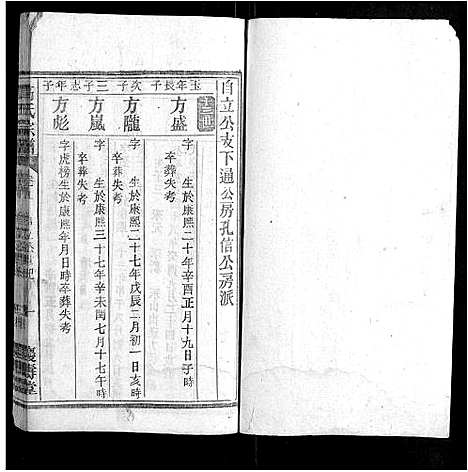 自立公支下通公房孔信公房派
玉年長子
方盛
字 生於康熙二十年辛酉正月十九日子時
卒葬失考
次子
方隴
字 生於康熙二十七年戊辰二月初一日亥時
卒葬失考
三子
方嵐
字 生於康熙三十七年辛未閏七月十七午時
卒葬失考
志年子
方彪
字虎榜生於康熙年月日時卒葬失考
氏宗譜
慶壽堂